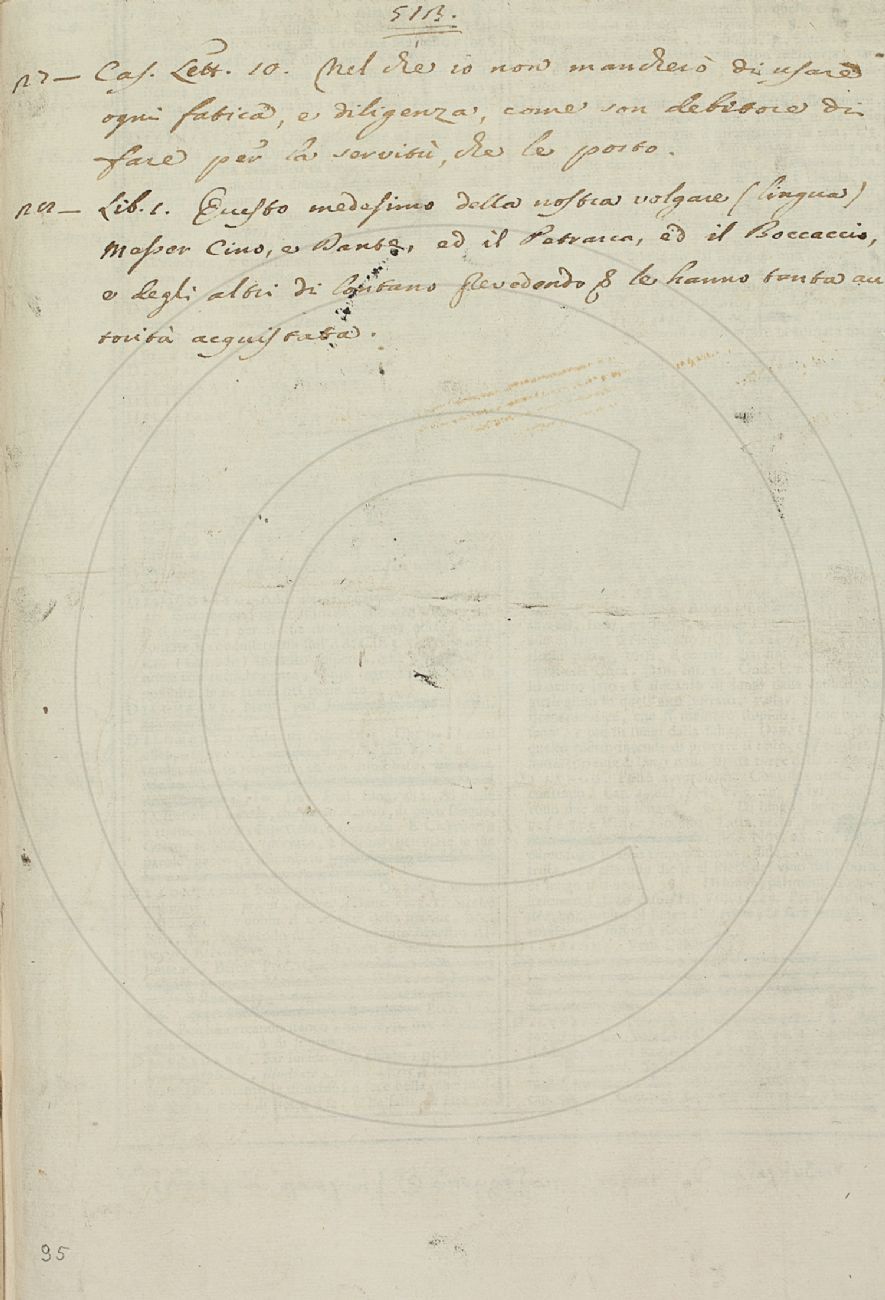 513.
n7 — Cas. Lett. 10. Nel che io non mancherò di usare
ogni fatica, e diligenza, come son debitore di
fare per la servitù, che le porto.
Lib. 1. Questo medesimo della nostra volgare (lingua)
Messer Cino, e Dante, ed il Petrarca, ed il Boccaccio,
e degli altri di lontano prevedendo le hanno tanta au
torità acquistata.
95